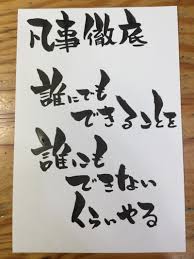 凡事徹底
誰にでも
できることを
誰にも
できない
くらいやる